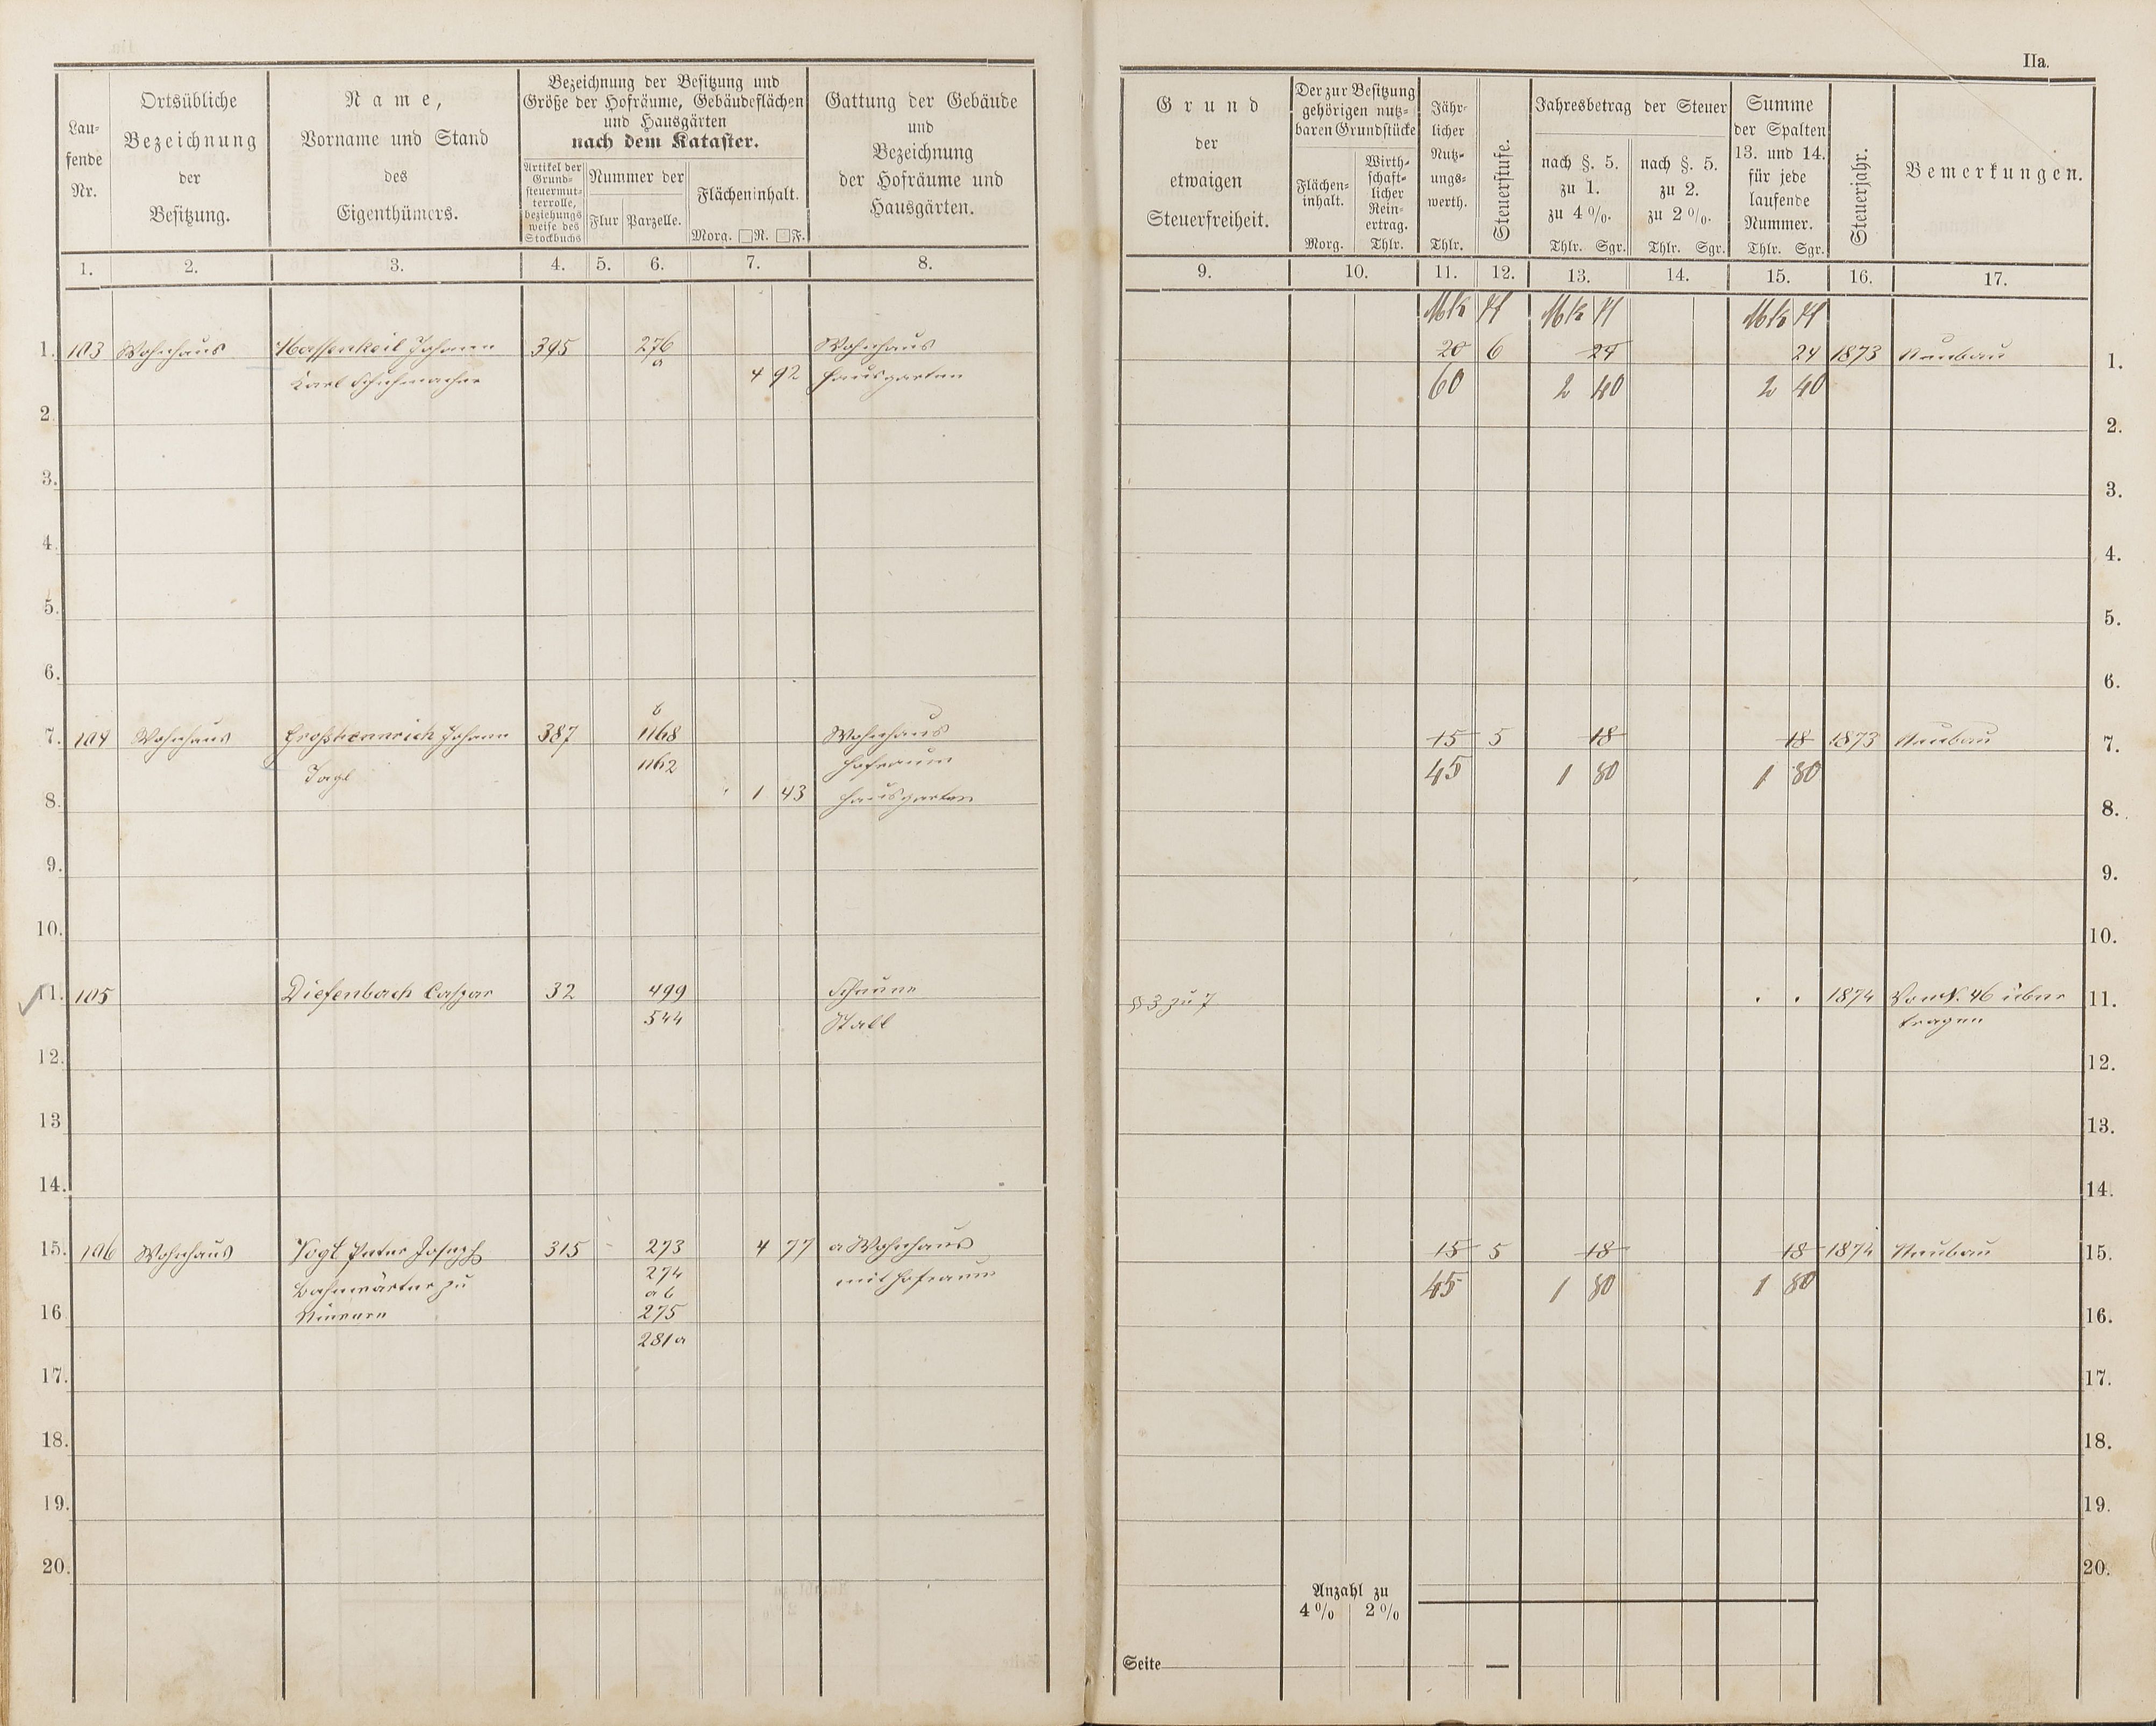 IIa.
Lau-
fende
Nr.
Ortsübliche
Bezeichnung
der
Besitzung.
Name,
Vorname und Stand
des
Eigenthümers.
Bezeichnung der Besitzung und
Größe der Hofräume, Gebäudeflächen
und Hausgärten
nach dem Kataster.
Artikel der
Grund-
steuermut-
terrolle,
beziehungs
weise des
Stockbuchs
Nummer der
Flur Parzelle.
Flächeninhalt.
Morg. □R. □F.
Gattung der Gebäude
und
Bezeichnung
der Hofräume und
Hausgärten.
Grund
der
etwaigen
Steuerfreiheit.
Der zur Besitzung
gehörigen nutz-
baren Grundstücke
Flächen-
inhalt.
Morg.
Wirth-
schaft-
licher
Rein-
ertrag.
Thlr.
Jähr-
licher
Nutz-
ungs-
werth.
Thlr.
Steuerstufe.
Jahresbetrag der Steuer
nach §. 5.
zu 1.
zu 4%.
Thlr. Sgr.
nach §. 5.
zu 2.
zu 2%.
Thlr. Sgr.
Summe
der Spalten
13. und 14.
für jede
laufende
Nummer.
Thlr. Sgr.
Steuerjahr.
Bemerkungen.
1. 2. 3. 4. 5. 6. 7. 8. 9. 10. 11. 12. 13. 14. 15. 16. 17.
Mk Pf Mk Pf Mk Pf
1. 103 Wohnhaus Hassenkeil Johann 395 276 Wohnhaus 20 6 24 24 1873 Neubau 1.
Karl Schuhmacher a 4 92 Hausgarten 60 2 40 2 40
2. 2.
3. 3.
4. 4.
5. 5.
6. 6.
b
7. 104 Wohnhaus Großhennrich Johann 387 1168 Wohnhaus 15 5 18 18 1873 Neubau 7.
1162 Hofraum 45 1 80 1 80
8. 1 43 Hausgarten 8.
9. 9.
10. 10.
11. 105 Diefenbach Caspar 32 499 Scheune § 3 zu 7 . . 1874 Von N. 46 über 11.
544 Stall tragen
12. 12.
13 13.
14. 14.
15. 106 Wohnhaus Vogt Peter Joseph 315 273 4 77 a Wohnhaus 15 5 18 18 1874 Neubau 15.
Bahnwärter zu 274 mit Hofraum 45 1 80 1 80
a b
16 275 16.
281a
17. 17.
18. 18.
19. 19.
20. 20.
Anzahl zu
4% 2%
Seite